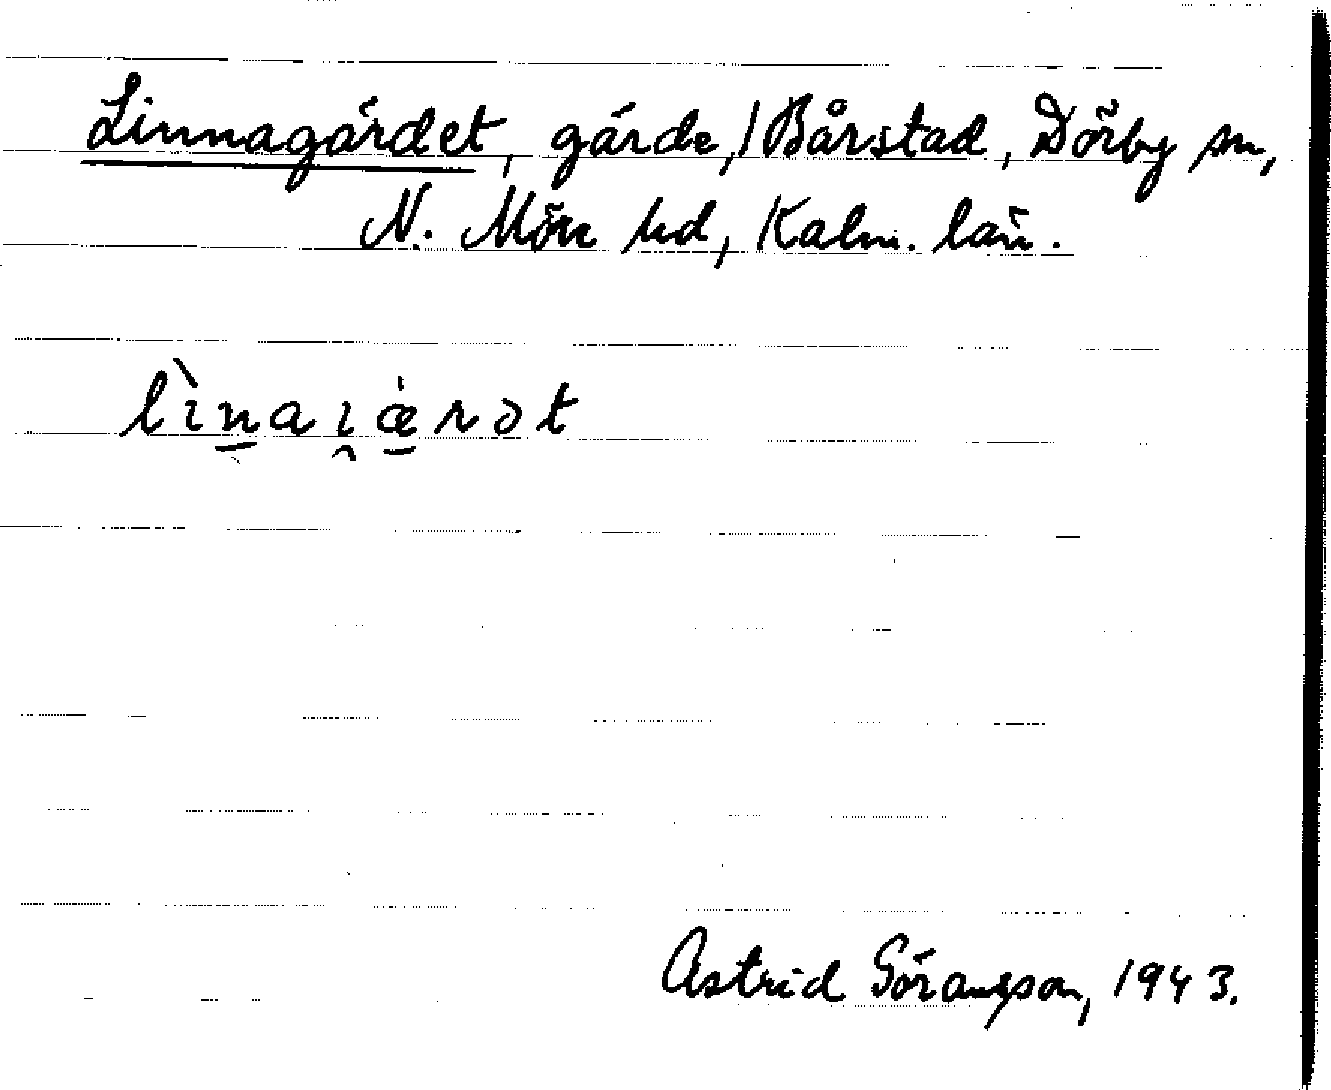 Linnagärdet, gärde, Bårstad, Dörby sn,
N. Möre hd, Kalm. län.
lìn̲aı̯æ̲rət
Astrid Göransson, 1943.